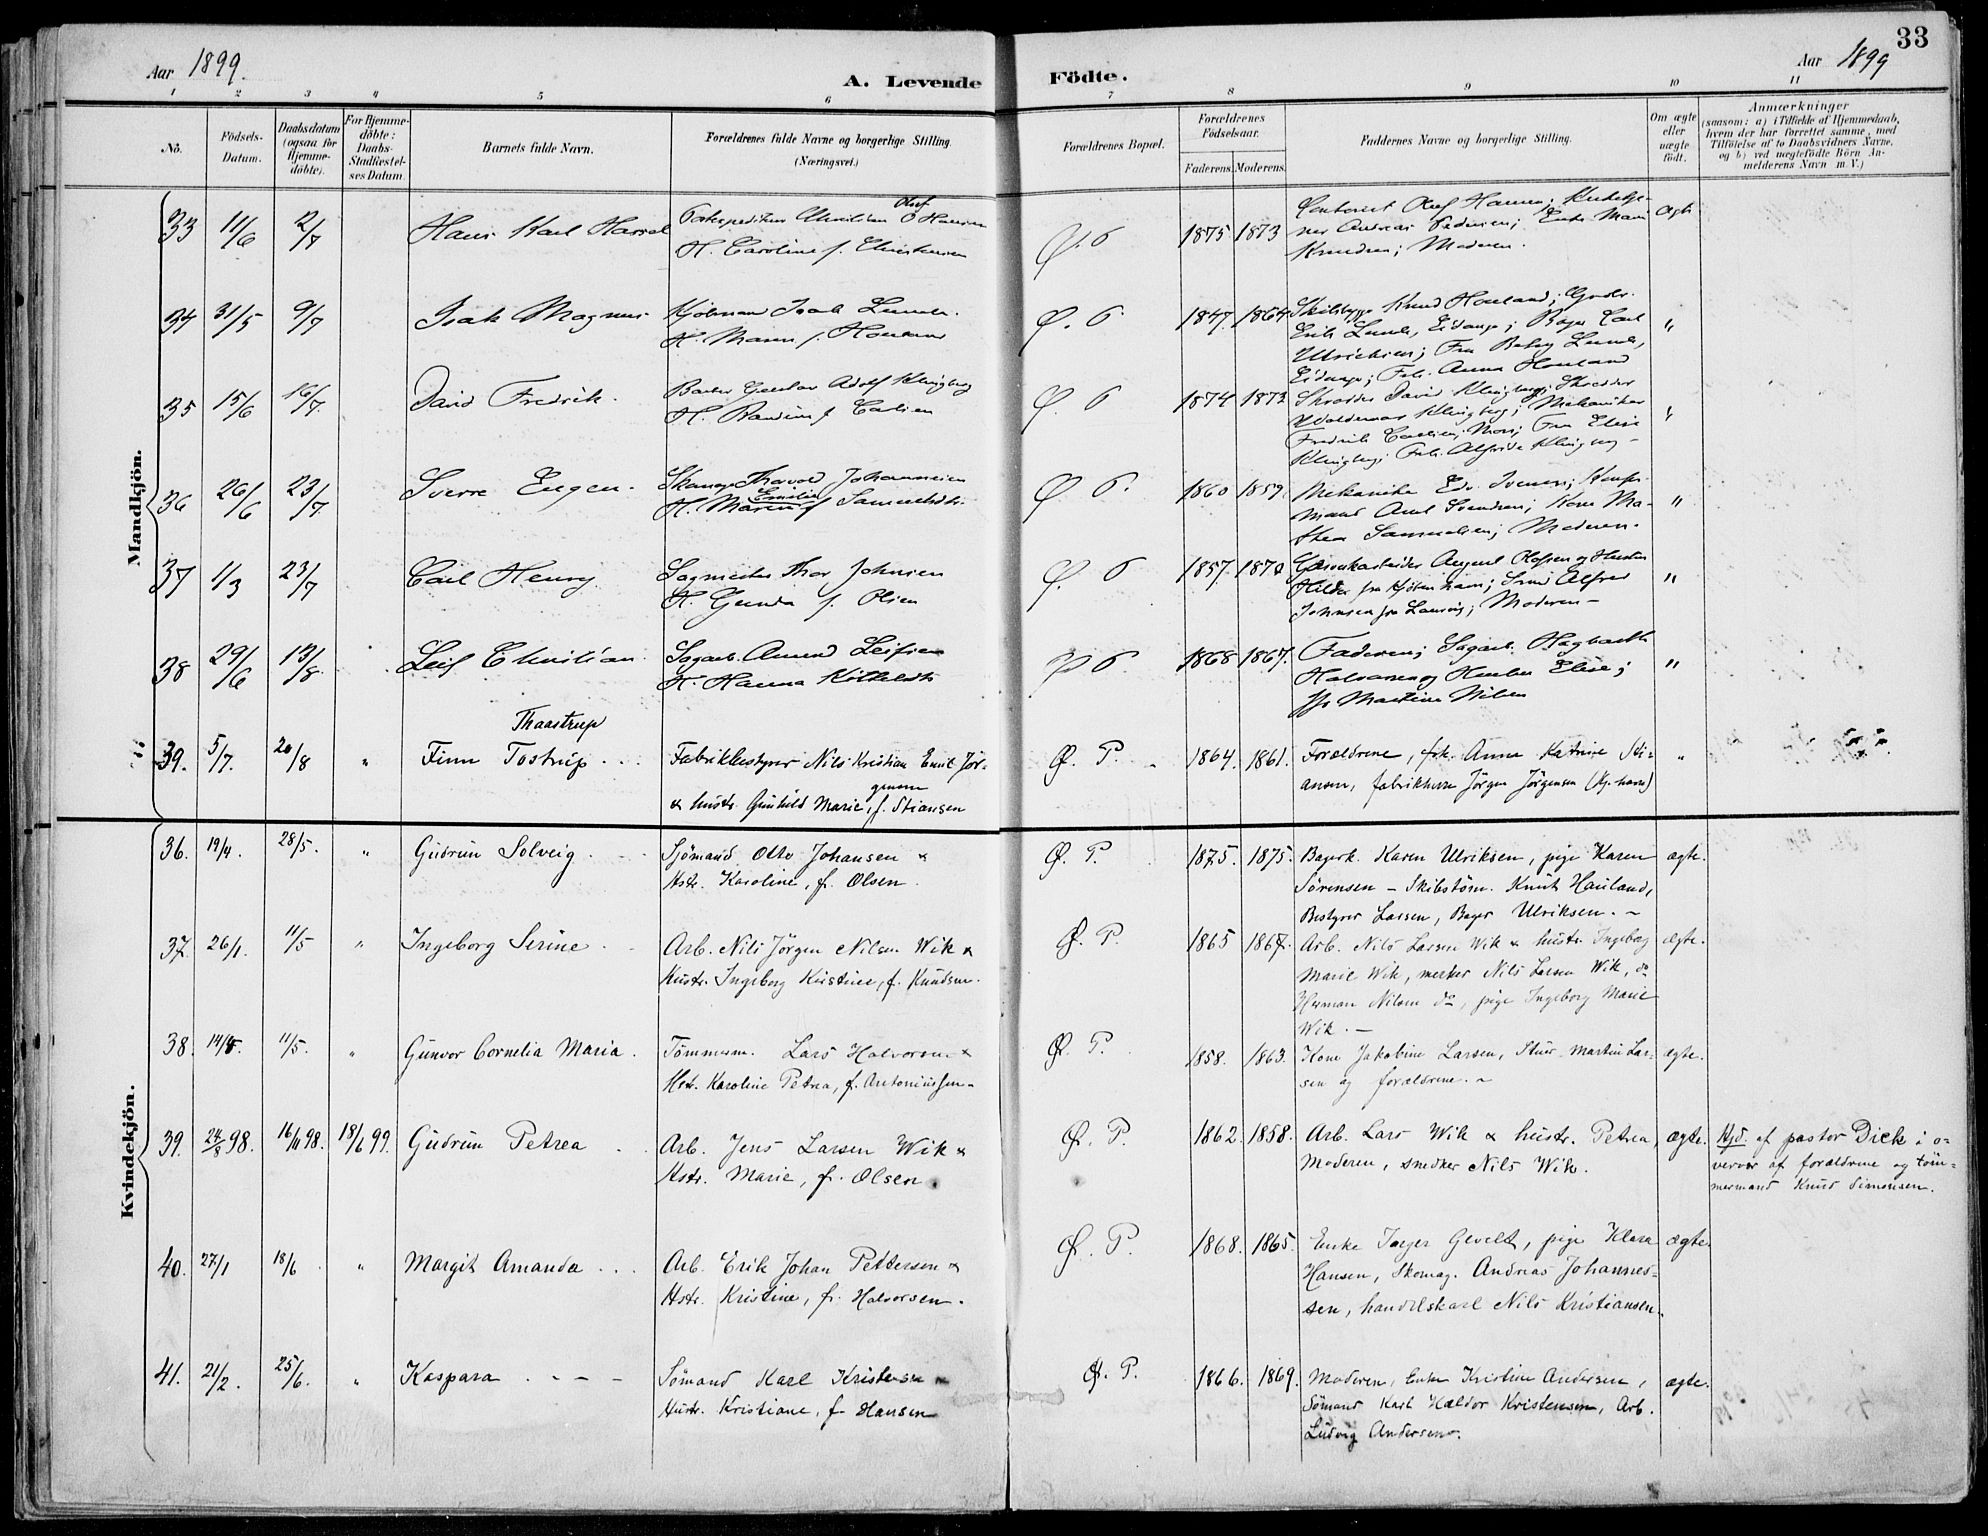 33
Aar 1899.
A. Levende
Födte.
Aar 1899
1 2 3 4 5 6 7 8 9 10 11
No.
Födsels-
Datum.
Daabsdatum
(ogsaa for
Hjemme-
döbte).
For Hjemme-
döbte:
Daabs-
Stadfæstel-
ses Datum.
Barnets fulde Navn.
Forældrenes fulde Navne og borgerlige Stilling.
(Næringsvei.)
Forældrenes Bopæl.
Forældrenes
Födselsaar.
Faderens. Moderens.
Faddernes Navne og borgerlige Stilling.
Om ægte
eller
uægte
födt.
Anmærkninger
(saasom: a) i Tilfælde af Hjemmedaab,
hvem der har forrettet samme, med
Tilföielse af to Daabsvidners Navne,
og b) ved uægtefödte Börn An-
melderens Navn m.V.)
Mandkjön.
33 11/6 2/7 Hans Karl
Olaf
Hansen
H. Caroline f. Christensen
Ø. P 1875 1873
Olaf Hansen;
Andreas Pedersen; Enke
Knudsen; Moderen.
Ægte
34 31/5 9/7 Isak Magnus Kjöbmand Isak Lunde.
H. Maren f. Houland
Ø. P 1847. 1864
Knud Houland;
Erik Lunde, Eidanger; Bager Carl
Ulrichsen; Fru Betsy Lunde,
Eidanger; Frk. Anna Houland
"
35 15/6 16/7. David Fredrik. Barber Gustav Adolf Klingberg
H. f. Carlsen
Ø. P 1874 1873
Skrædder David Klingberg; Skrædder
Waldemar Klingberg; Mekaniker
Fredrik Carlsen, Moss; Fru Elise
Klingberg; Frk. Alfride Klingberg –
"
36 26/6 23/7. Sverre Eugen. Thorvald Johannesen
Emilie
H. Maren f. Samuelsdtr.
Ø. P. 1860 1859.
Mekaniker Edv. Svensen;
Svendsen; Kone
Samuelsen; Moderen.
"
37 1/3 23/7 Carl Henry. Sagmester Thor Johnsen
H. Gunda f. Olsen
Ø. P 1857. 1870
August Olofsen og Hustru
Hilda fra Kjöbenhavn; Smed Alfred
Johnsen fra Laurvig; Moderen –
"
38 29/6 13/8. Leif Christian. Sagarb. Amund Leifsen
H. Hanna
Ø P 1868 1867.
Faderen; Sagarb. Hagbarth
Halvorsen og Hustru Elise;
Martine Nilsen
"
Thaastrup
39. 5/7. 20/8 " Finn Tostrup . . . Fabrikbestyrer Nils Kristian Emil Jör-
gensen
& hustr. Gunhild Marie, f. Stiansen
Ø. P. 1864. 1861.
Forældrene, frk. Anna Katrine Sti-
ansen, fabrikherre Jörgen Jörgensen (Kp.havn)
"
Kvindekjön.
36. 19/4. 28/5. " Gudrun Solveig . Sjömand Otto Johansen &
Hstr. Karoline, f. Olsen.
Ø. P. 1875. 1875.
Bagerk. Karen Ulriksen, pige Karen
Sörensen – Skibstöm. Knut Hauland,
Bestyrer Larsen, Bager Ulriksen. –
ægte.
37. 26/1. 11/5 " Ingeborg Serine . Arb. Nils Jörgen Nilsen Wik &
Hustr. Ingeborg Kirstine, f. Knudsen.
Ø. P. 1865 1867.
Arb. Nils Larsen Wik & hustr. Ingeborg
Marie Wik, Nils Larsen Wik, do
Herman Nilsen do, pige Ingeborg Marie
Wik. –
ægte.
38. 14/4. 11/5. " Gunvor Cornelia Maria. Tömmerm. Lars Halvorsen &
Hstr. Karoline Petrea, f. Antoniussen –
Ø. P. 1858. 1863.
Kone Jakobine Larsen, Stuer. Martin Lar-
sen og forældrene. –
ægte.
39. 24/8 98. 16/11 98. 18/6 99. Gudrun Petrea . Arb. Jens Larsen Wik &
Hstr. Marie, f. Olsen.
Ø. P. 1862. 1858.
Arb. Lars Wik & hustr. Petrea,
Moderen, snedker Nils Wik.
ægte.
Hjd. af pastor Dick i o-
vervær af forældrene og töm-
mermand Knud Simonsen.
40. 27/1 18/6 . " Margit Amanda . . . Arb. Erik Johan Pettersen &
Hstr. Kristine, f. Halvorsen.
Ø. P. 1868. 1865.
Enke Gevelt, pige Klara
Hansen, Skomag. Andreas Johannes-
sen, handelskarl Nils Kristiansen.
ægte.
41. 21/2. 25/6. " Kaspara . – – – Sömand Karl Kristensen &
Hustr. Kristiane, f. Hansen
Ø. P. 1866. 1869.
Moderen, Enke Kristine Andersen,
Sömand Karl Haldor Kristensen, Arb.
Ludvig Andersen.
ægte.